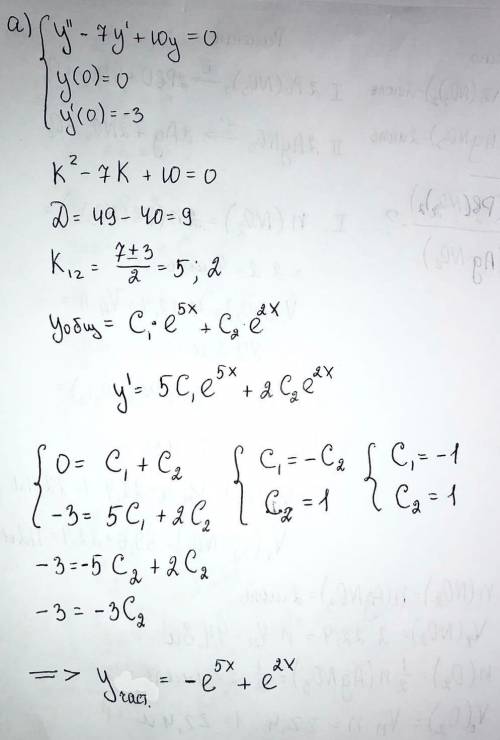 а) { y'' - 7y' + 10y = 0
y(0) = 0
y'(0) = -3
K² - 7K + 10 = 0
D = 49 - 40 = 9
K₁₂ = (7 ± 3)/2 = 5 ; 2
yобщ = C₁·e^5x + C₂·e^2x
y' = 5C₁e^5x + 2C₂e^2x
{ 0 = C₁ + C₂ { C₁ = -C₂ { C₁ = -1
-3 = 5C₁ + 2C₂ C₂ = 1 C₂ = 1
-3 = -5C₂ + 2C₂
-3 = -3C₂
=> yчаст. = -e^5x + e^2x